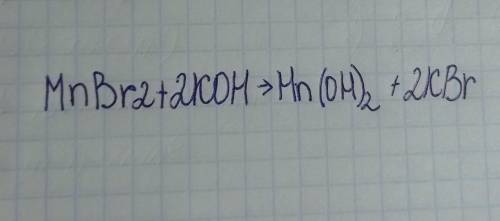 MnBr2+2KOH→Mn(OH)₂+2KBr